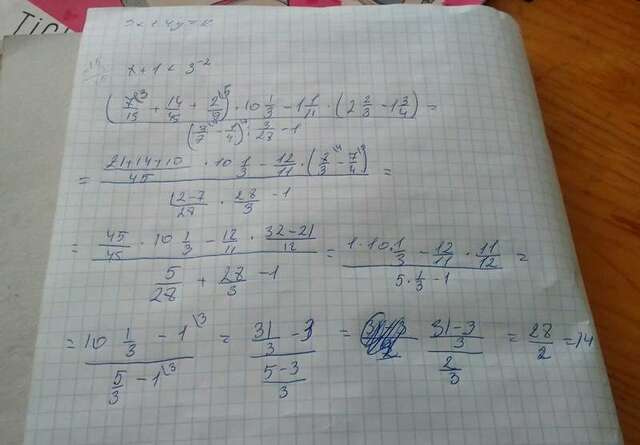 x+1 < 3^-2
(7/15 \3 + 14/45 + 2/9 \5) · 10 1/3 − 1 1/11 · (2 2/3 − 1 3/4) / (3/7 \4 − 1/4 \7) : 3/28 − 1 =
= 21+14+10/45 · 10 1/3 − 12/11 · (8/3 \4 − 7/4 \3) / 12−7/28 · 28/3 − 1 =
= 45/45 · 10 1/3 − 12/11 · 32−21/12 / 5/28 + 28/3 − 1 = 1·10·1/3 − 12/11 · 11/12 / 5·1/3 − 1 =
= 10 1/3 − 1 \3 / 5/3 − 1 \3 = 31/3 − 3 / 5−3/3 = 31−3/3 / 2/3 = 28/2 = 14